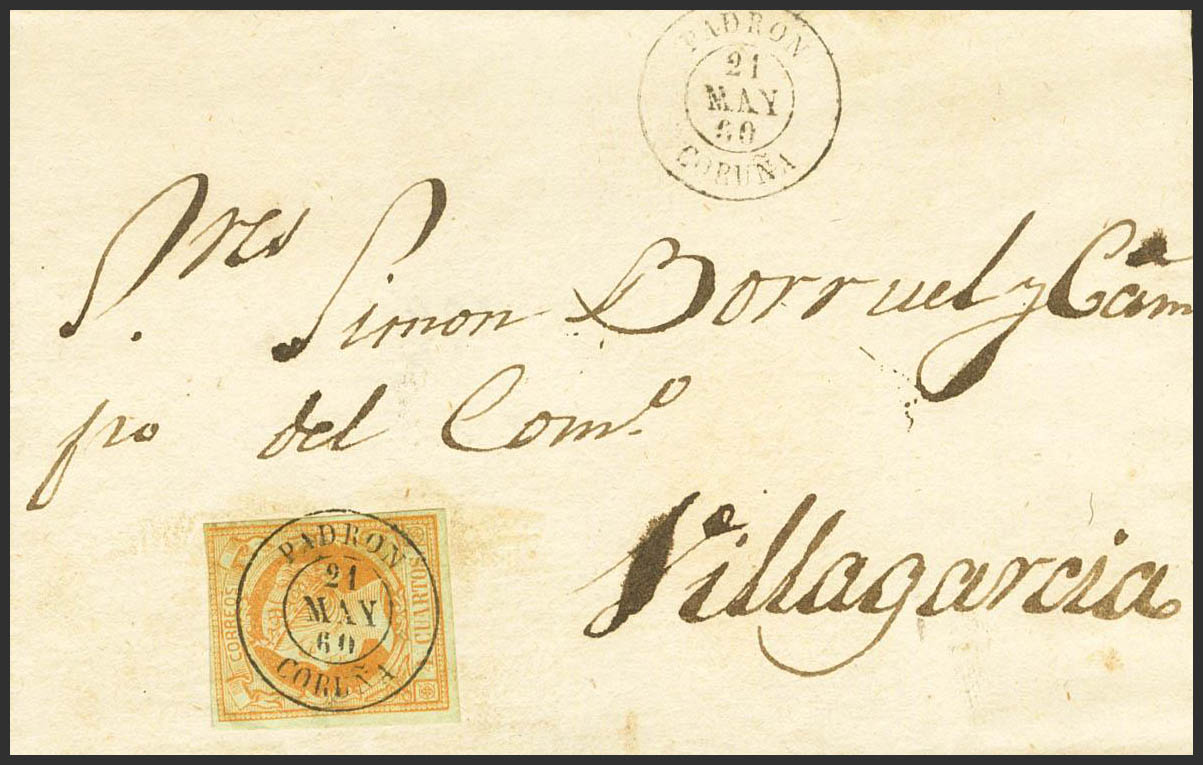 PADRON
21
MAY
60
CORUÑA
Sres
S. Simon Borruel y Cam
pro del Com.o
Villagarcia
CORREOS
CUARTOS
PADRON
21
MAY
60
CORUÑA